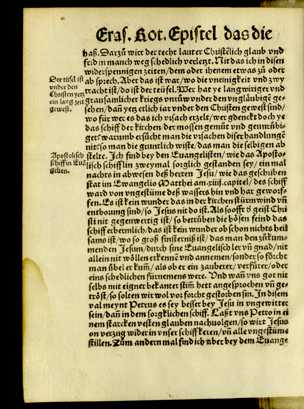 Eras. Rot. Epistel das die
haß. Darzů wirt der recht lauter Christēlich glaub vnd
frid in mauch weg schedlich verletzt. Nit das ich in disen
widerspennigen zeiten/ dem oder ihenem etwas zů oder
ab sprech. Aber das ist war/ wo die vneinigkeit vnd zwy
tracht ist/ do ist der teüfel. Wer hat ye langwiriger vnd
Der tüfel ist
vnder den
Christen yetz
ein lang zeit
gewest.
graufamlicher kriegs vnrůw vnder den vnglaubigē ge-
sehen/ dañ yetz etlich iar vnder den Christen gewest sind/
wo für wer es das ich vrsach erzelt/ wer
das schiff der kirchen der massen genůt vnd
ger? warumb ersůcht man die vrsachen diser handlungē
nit? so man die gruntlich wiste/ das man die selbigen ab
stelte. Ich find bey den Euangelisten/ wie das Apostos
Apostolisch
schiff in Euā
lisch schiff im zweymal sorglich gestanden sey/ ein mal
nachts in abwesen deß herren Jesu/ wie das geschriben
stat im Ewangelio Matthei am capitel/ des schiff
ward von vngestüme deß wassers hin vnd har geworf-
fen. Es ist kein wunder das in der kirchen stürmwind vñ
entbörung sind/ so Jesus nit do ist. Als so offt d geist Chri
sti nit gegenwertig ist/ so betrüben die bösen feind das
schiff erbermlich/ das ist kein wunder ob schon nichts heil
samo ist/ wo so groß finsternis ist/ das man den zůkum-
menden Jesum/ durch sine Euangelisch ler vñ gnad/ nit
allein nit wöllen erkennē vnd annemen/ sonder so förcht
man übel er kum/ als ob er ein zauberer/ verfürer/ oder
eins schedlichen fürnemens were. Vnd wañ vns got nit
selbs mit eigner bekanter stim̄ hett angesprochen vñ ge-
tröst/ so solten wir wol vor forcht gestorben sin. In disem
val meynt Petrus es sey besser bey Jesu in vngewitter
sein/ dañ in dem sorgklichen schiff. Laßt vns Petro in ei
nem starcken vesten glauben nachuolgen/ so wirt Jesus
on verzug wider in vnser schiff keren/ vñ alle vngestüme
stillen. Zům andern mal find ich aber bey dem Euange